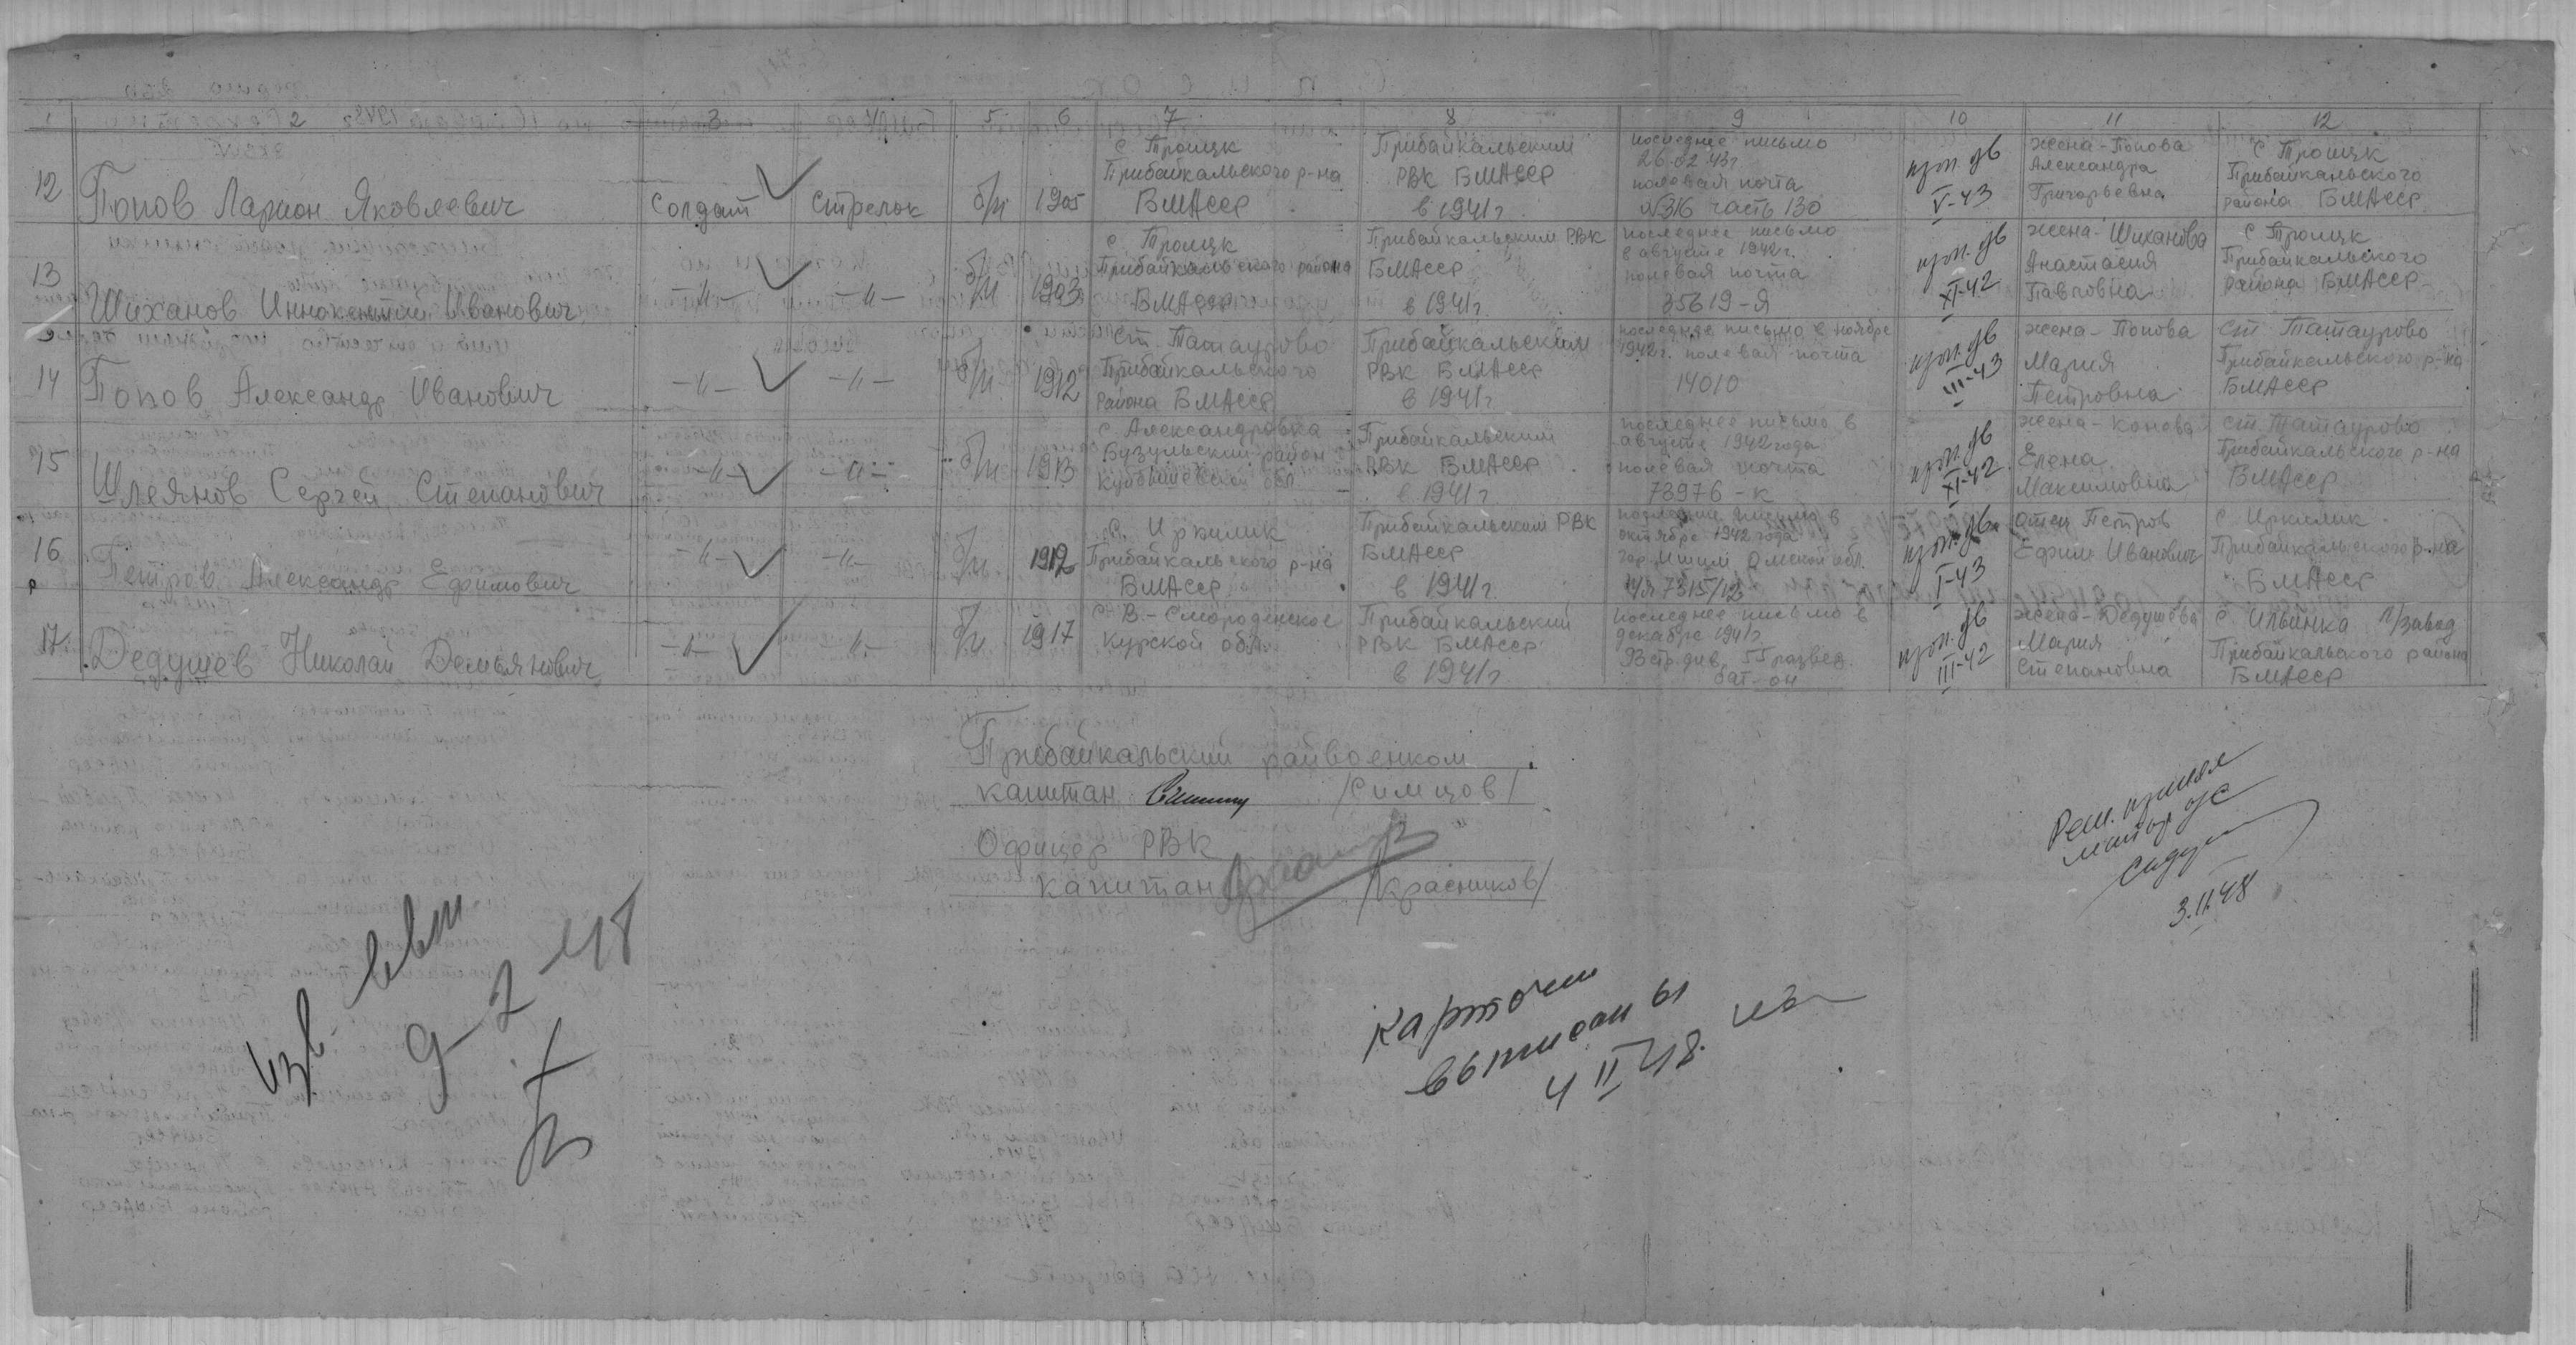 1 2 3 4 5 6 7 8 9 10 11 12
12 Попов Ларион Яковлевич солдат стрелок б/п 1905
с Троицк
Прибайкальского р-на
БМАССР
Прибайкальским
РВК БМАССР
в 1941г.
последнее письмо
26.02.43г
полевая почта
№316 часть 130
проп. дв
V-43
жена - Попова
Александра
Григорьевна
с Троицк
Прибайкальского
района БМАССР
13 Шиханов Иннокентий Иванович -"- -"- б/п 1903
с. Троицк
Прибайкальского района
БМАССР
Прибайкальским РВК
БМАССР
в 1941г.
последнее письмо
в августе 1942г.
полевая почта
35619-Я
проп. дв
XI-42
жена - Шиханова
Анастасия
Павловна
с Троицк
Прибайкальского
района БМАССР
14 Попов Александр Иванович -"- -"- б/п 1912
ст. Татаурово
Прибайкальского
района БМАССР
Прибайкальским
РВК БМАССР
в 1941г
последнее письмо в ноябре
1942г. полевая почта
14010
проп. дв
III-43
жена - Попова
Мария
Петровна
ст Татаурово
Прибайкальского р-на
БМАССР
15 Шлеянов Сергей Степанович -"- -"- б/п 1913
с. Александровка
Бузульский район
Куйбышевской обл.
Прибайкальским
РВК БМАССР
в 1941г.
последнее письмо в
августе 1942 года
полевая почта
73976-к
проп. дв
XI-42.
жена - Конева
Елена
Максимовна
ст. Татаурово
Прибайкальского р-на
БМАССР
16 Петров Александр Ефимович -"- -"- б/п 1912
с. Иркилик
Прибайкальского р-на
БМАССР
Прибайкальским РВК
БМАССР
в 1941г.
последнее письмо в
октябре 1942 года
гор. Ишим Омской обл.
п/я 7315/12
проп. дв
I-43
отец Петров
Ефим Иванович
с Иркилик
Прибайкальского р-на
БМАССР
17. Дедушев Николай Демьянович -"- -"- б/п 1917
с. В.-Смороденское
Курской обл.
Прибайкальский
РВК БМАССР
в 1941г
последнее письмо в
декабре 1941г
93 стр. див. развед.
бат-он
проп. дв
III-42
жена - Дедушева
Мария
Степановна
с. Ильинка п/завод
Прибайкальского района
БМАССР
Прибайкальский райвоенком
капитан /Симцов/
Офицер РВК
капитан /Красников/
3.II.48
Изв.
9-2-48
Карточки
выписаны
4 II 48.